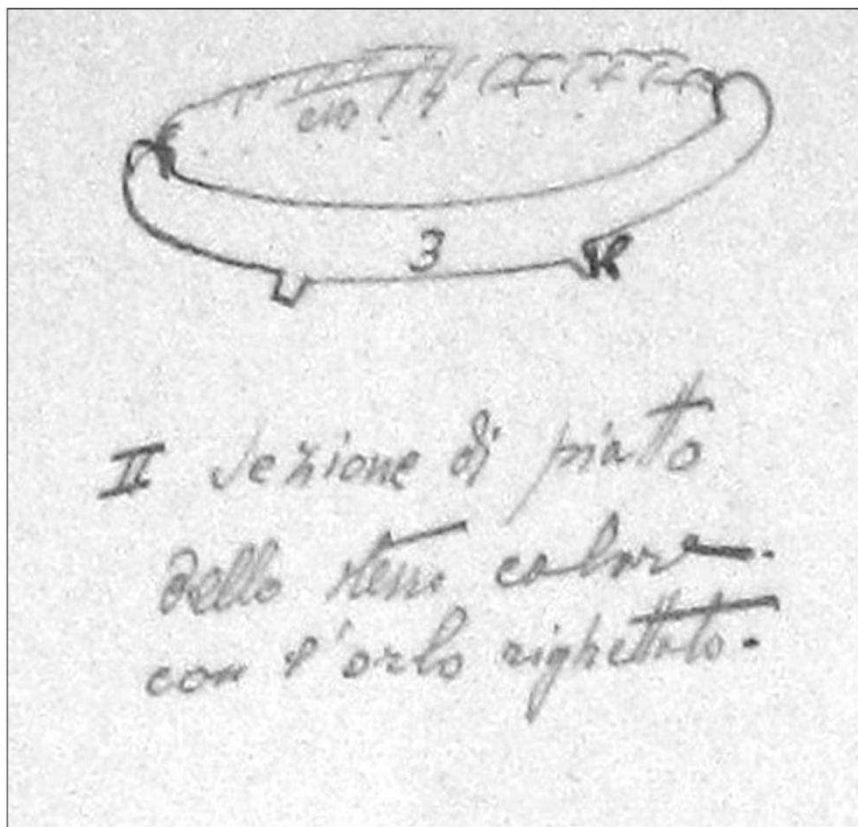 3
II Sezione di piatto
dello stesso colore.
con l'orlo righettato.